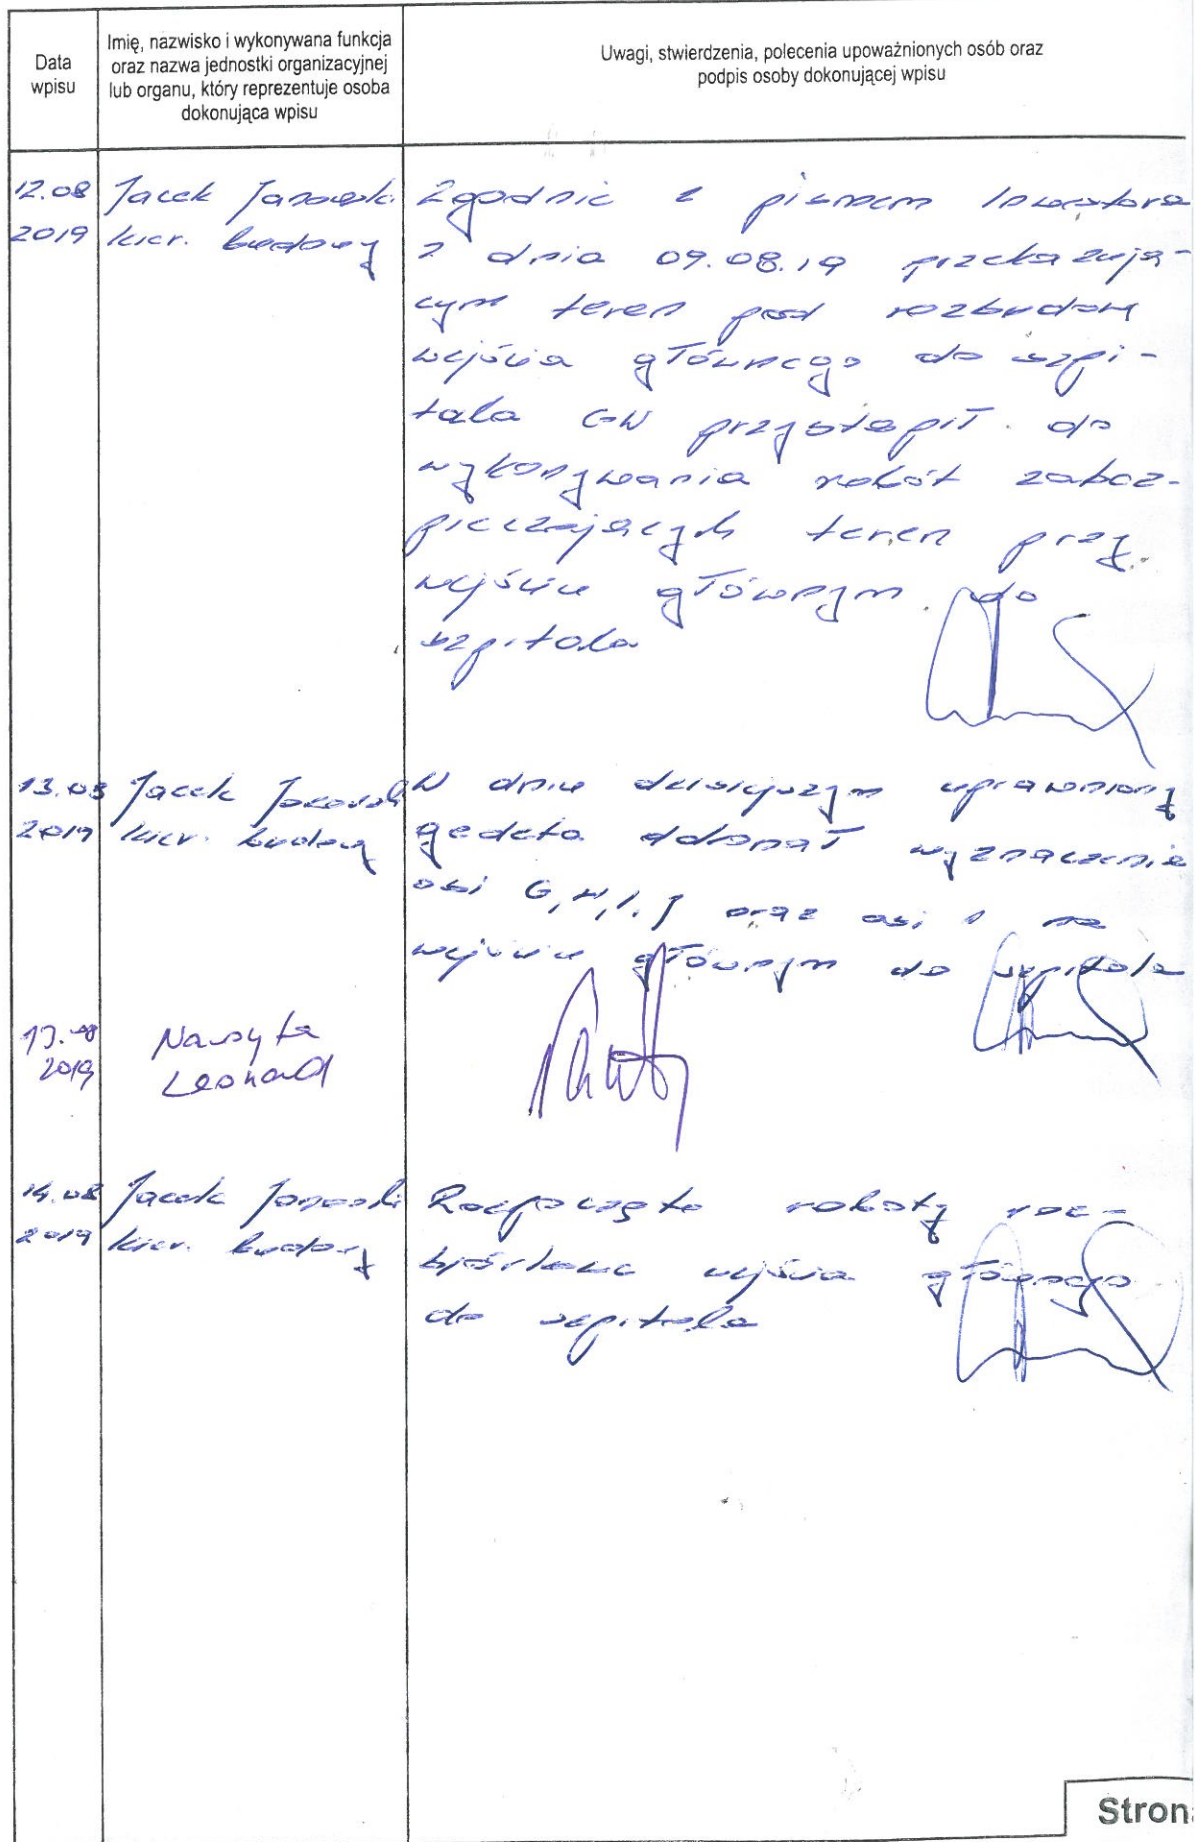 Data
wpisu
Imię, nazwisko i wykonywana funkcja
oraz nazwa jednostki organizacyjnej
lub organu, który reprezentuje osoba
dokonująca wpisu
Uwagi, stwierdzenia, polecenia upoważnionych osób oraz
podpis osoby dokonującej wpisu
12.08
2019
Jacek
kier. budowy
Zgodnie z pismem Inwestora
z dnia 09.08.19 przekazują-
cym teren pod rozbudowę
wejścia głównego do szpi-
tala GW przystąpił do
wykonywania robót zabez-
pieczających teren przy
wejściu głównym do
szpitala
13.08
2019
Jacek
kier. budowy
W dniu dzisiejszym uprawniony
geodeta dokonał wyznaczenie
osi G, H, I, J oraz osi 1 na
wejściu głównym do szpitala
13.08
2019
Leonard
14.08
2019
Jacek
kier. budowy
Rozpoczęto roboty roz-
biórkowe wejścia głównego
do szpitala
Stron